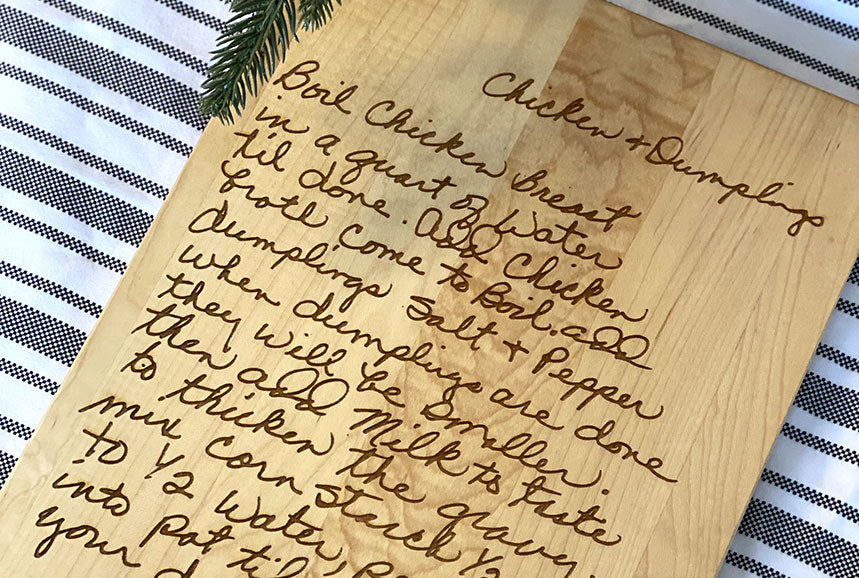 Chicken + Dumplings
Boil Chicken Breast
in a quart of Water
til done. add Chicken
broth come to Boil. add
dumplings Salt + Pepper
when dumplings are done
they will be smaller.
then add Milk to taste
to thicken the gravy.
mix corn starch 1/2
to 1/2 water,
into pot til
your